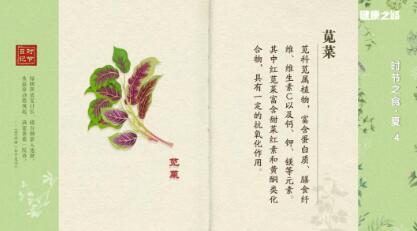 健康之路
时节之食·夏 4
苋菜
苋科苋属植物，富含蛋白质、膳食纤
维、维生素C以及钙、钾、镁等元素。
其中红苋菜富含甜菜红素和黄酮类化
合物，具有一定的抗氧化作用。
苋菜
时节
日记